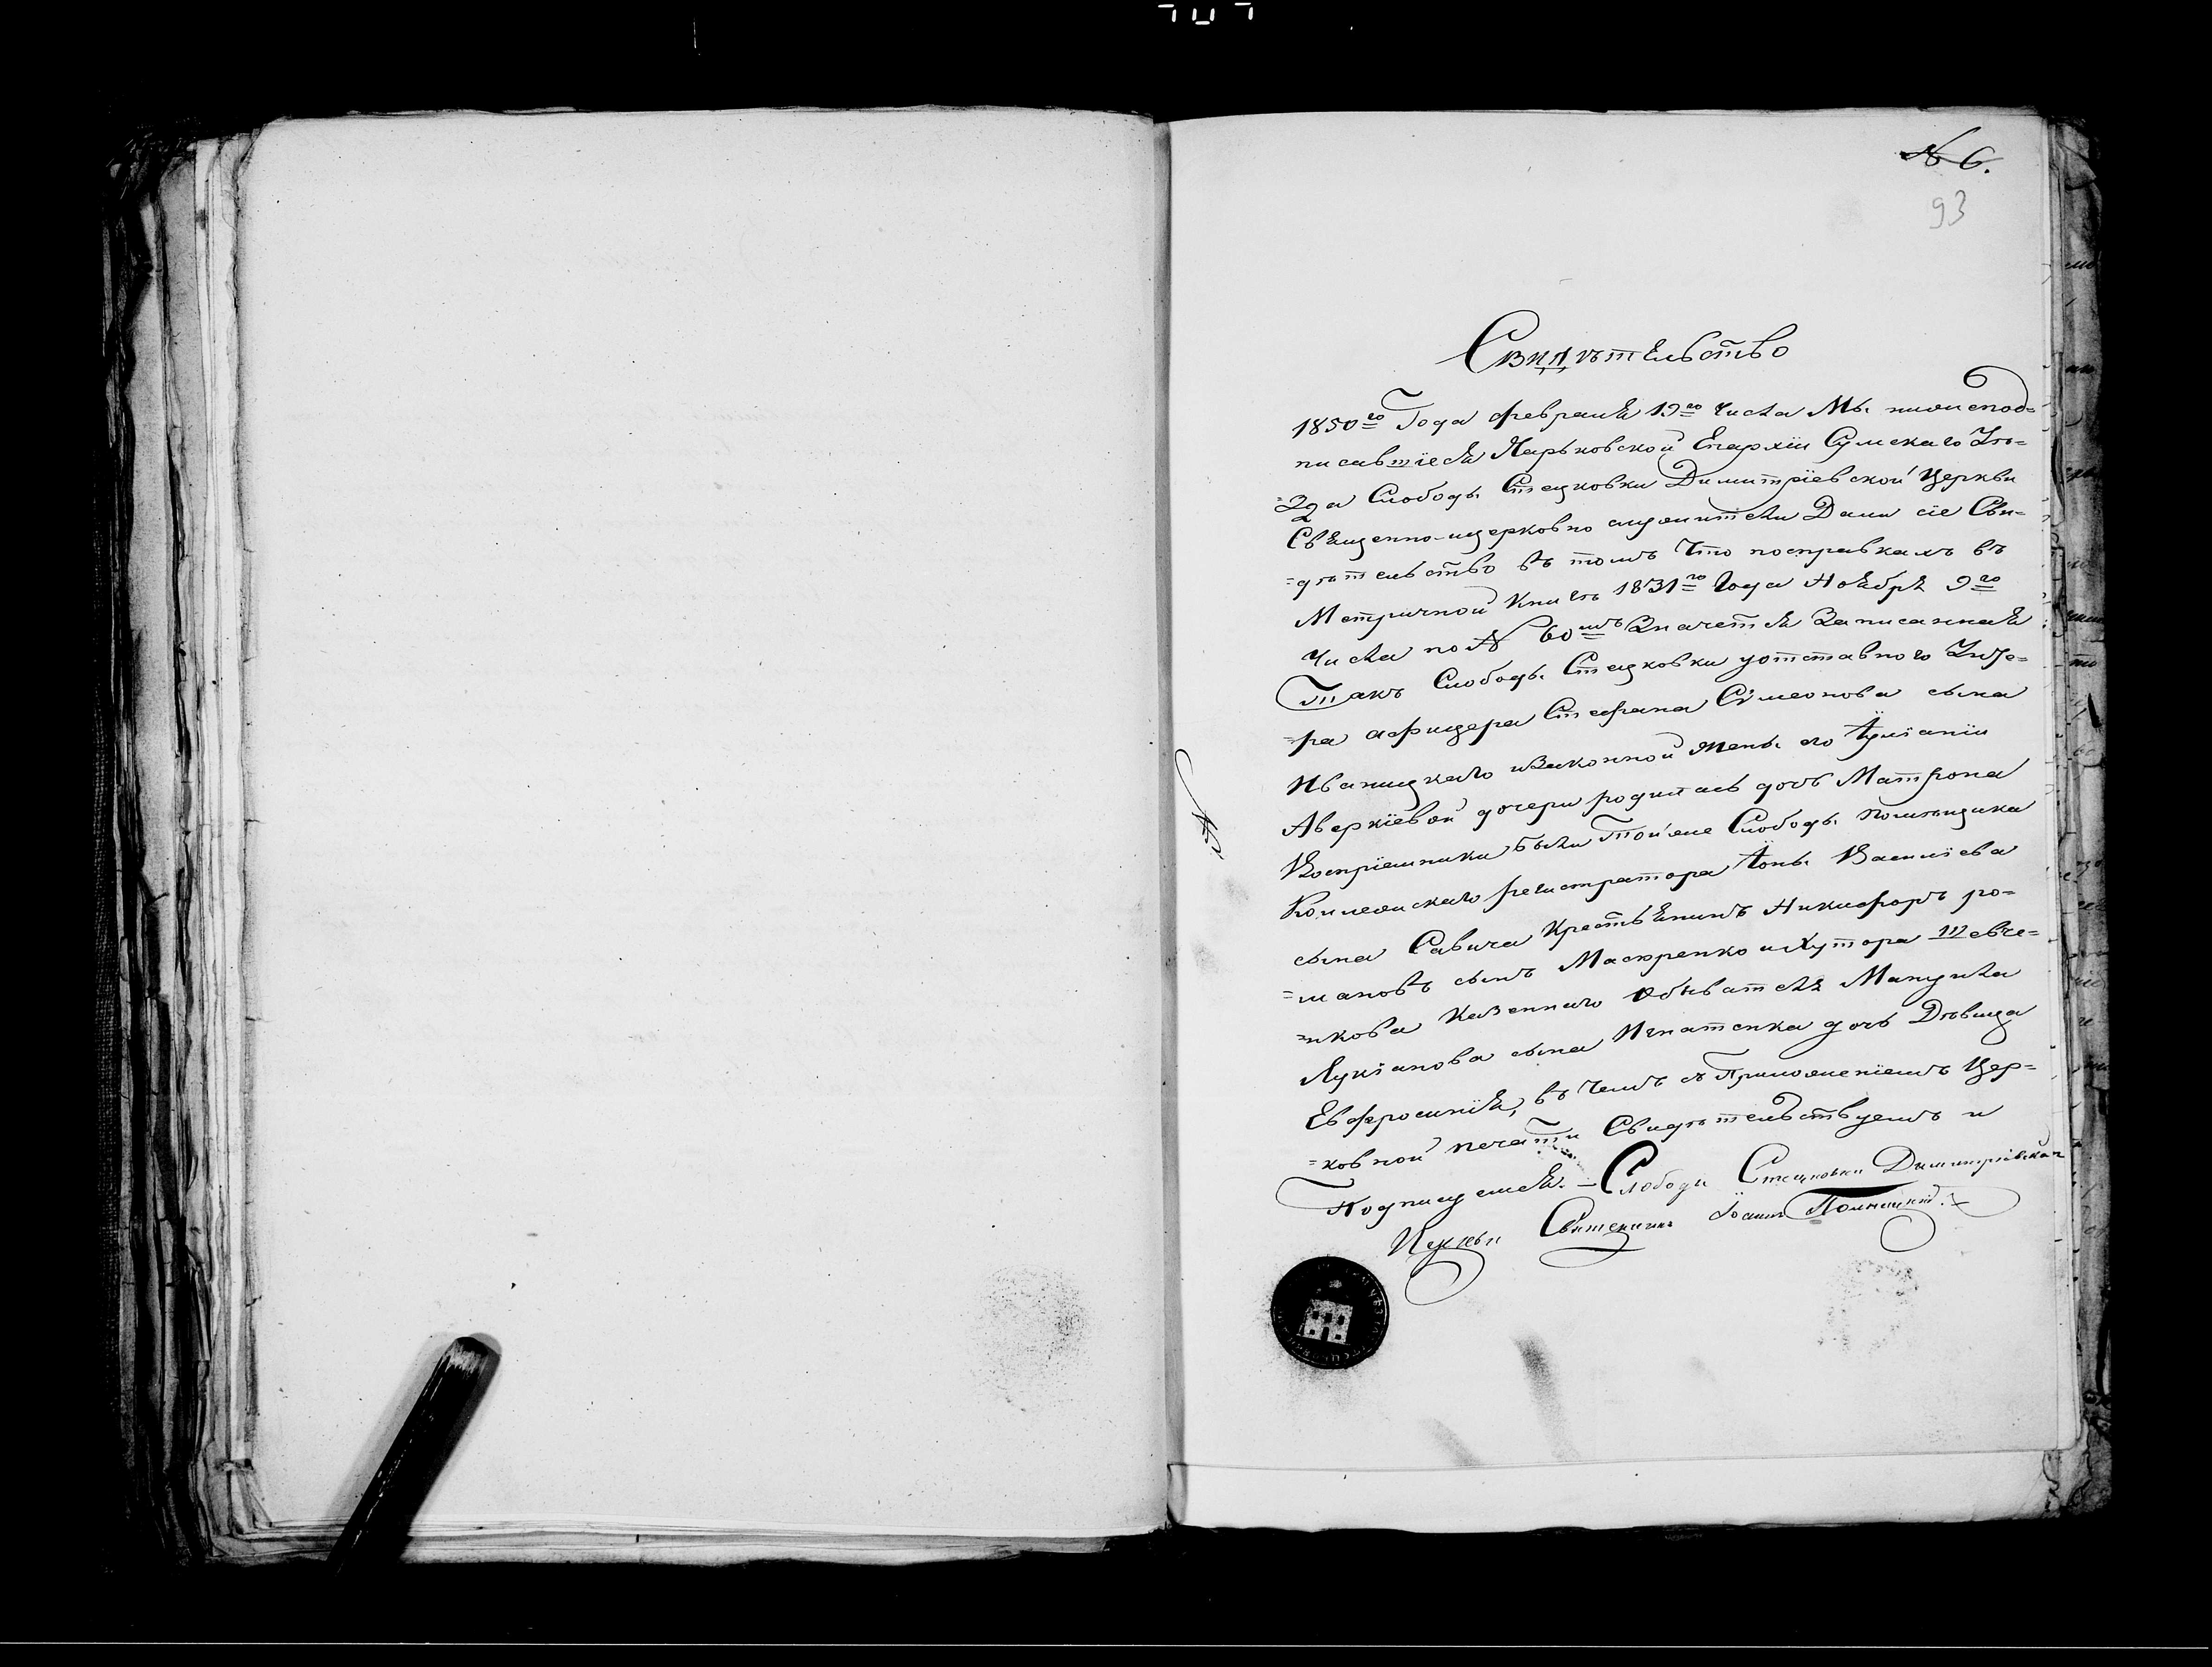 № 6.
93
Свидѣтельство
1850го Года февраля 19го числа Мы нижепод=
писавшіеся Харьковской Епархіи Сумскаго Уѣ=
=зда Слободы Стецковки Димитріевской Церкви
Священно-церковно служители Дали сіе Сви=
=дѣтельство въ томъ Что посправкамъ въ
Метричной Книгѣ 1831го Года Ноября 9го
Числа по № 60мъ Значется Записанная
Такъ Слободы Стецковки уотставного Унте=
=ра афицера Стефана Сѵмеонова сына
Иваницкаго изаконной жены его Іуліаніи
Аверкіевой дочери родилась дочь Матрона
Воспріемники были Той же Слободы помѣщика
Коллежскаго регистратора Іоны Василіева
сына Савича Крестьянинъ Никифоръ ро=
=мановъ сынъ Масюренко и Хутора Шевче=
=нкова Казеннаго Обывателя Мануила
Лукіанова сына Игнатенка дочь Дѣвица
Евфросинія, въ Чемъ съ Приложеніемъ Цер=
=ковной печати Свидѣтельствуемъ и
Подписуемся. — Слободы Стецковки Димитріевской
Церкви Священникъ Іоаннъ